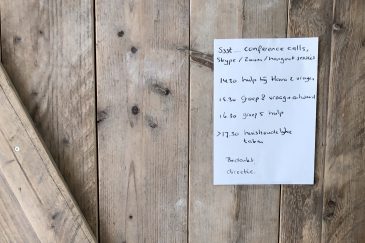 Ssst... conference calls,
Skype / Zoom / hangout sessies
14.30 hulp bij
15.30 groep 8
16.30 groep 5 hulp
>17.30 huishoudelijke
taken
Bedankt
directie